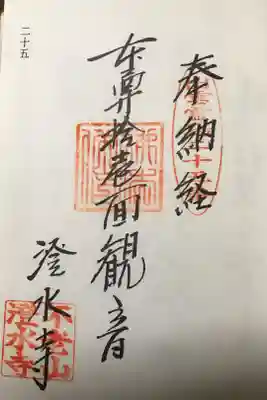 奉納経
本尊拾壱面観音
澄水寺
不老山
澄水寺
二十五